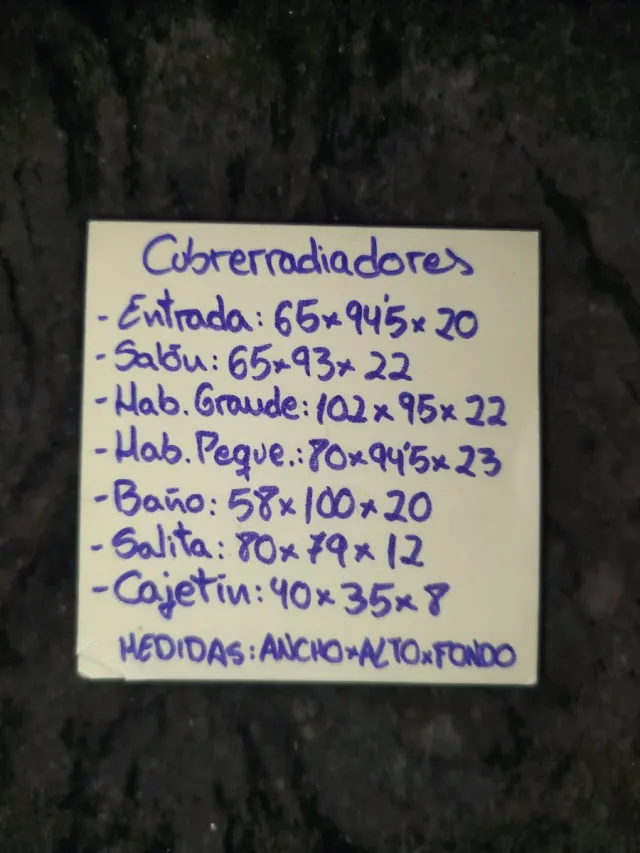 Cubrerradiadores
- Entrada: 65x94'5x20
- Salón: 65x93x22
- Hab. Grande: 102x95x22
- Hab. Peque.: 80x94'5x23
- Baño: 58x100x20
- Salita: 80x79x12
- Cajetin: 40x35x8
MEDIDAS: ANCHOxALTOxFONDO